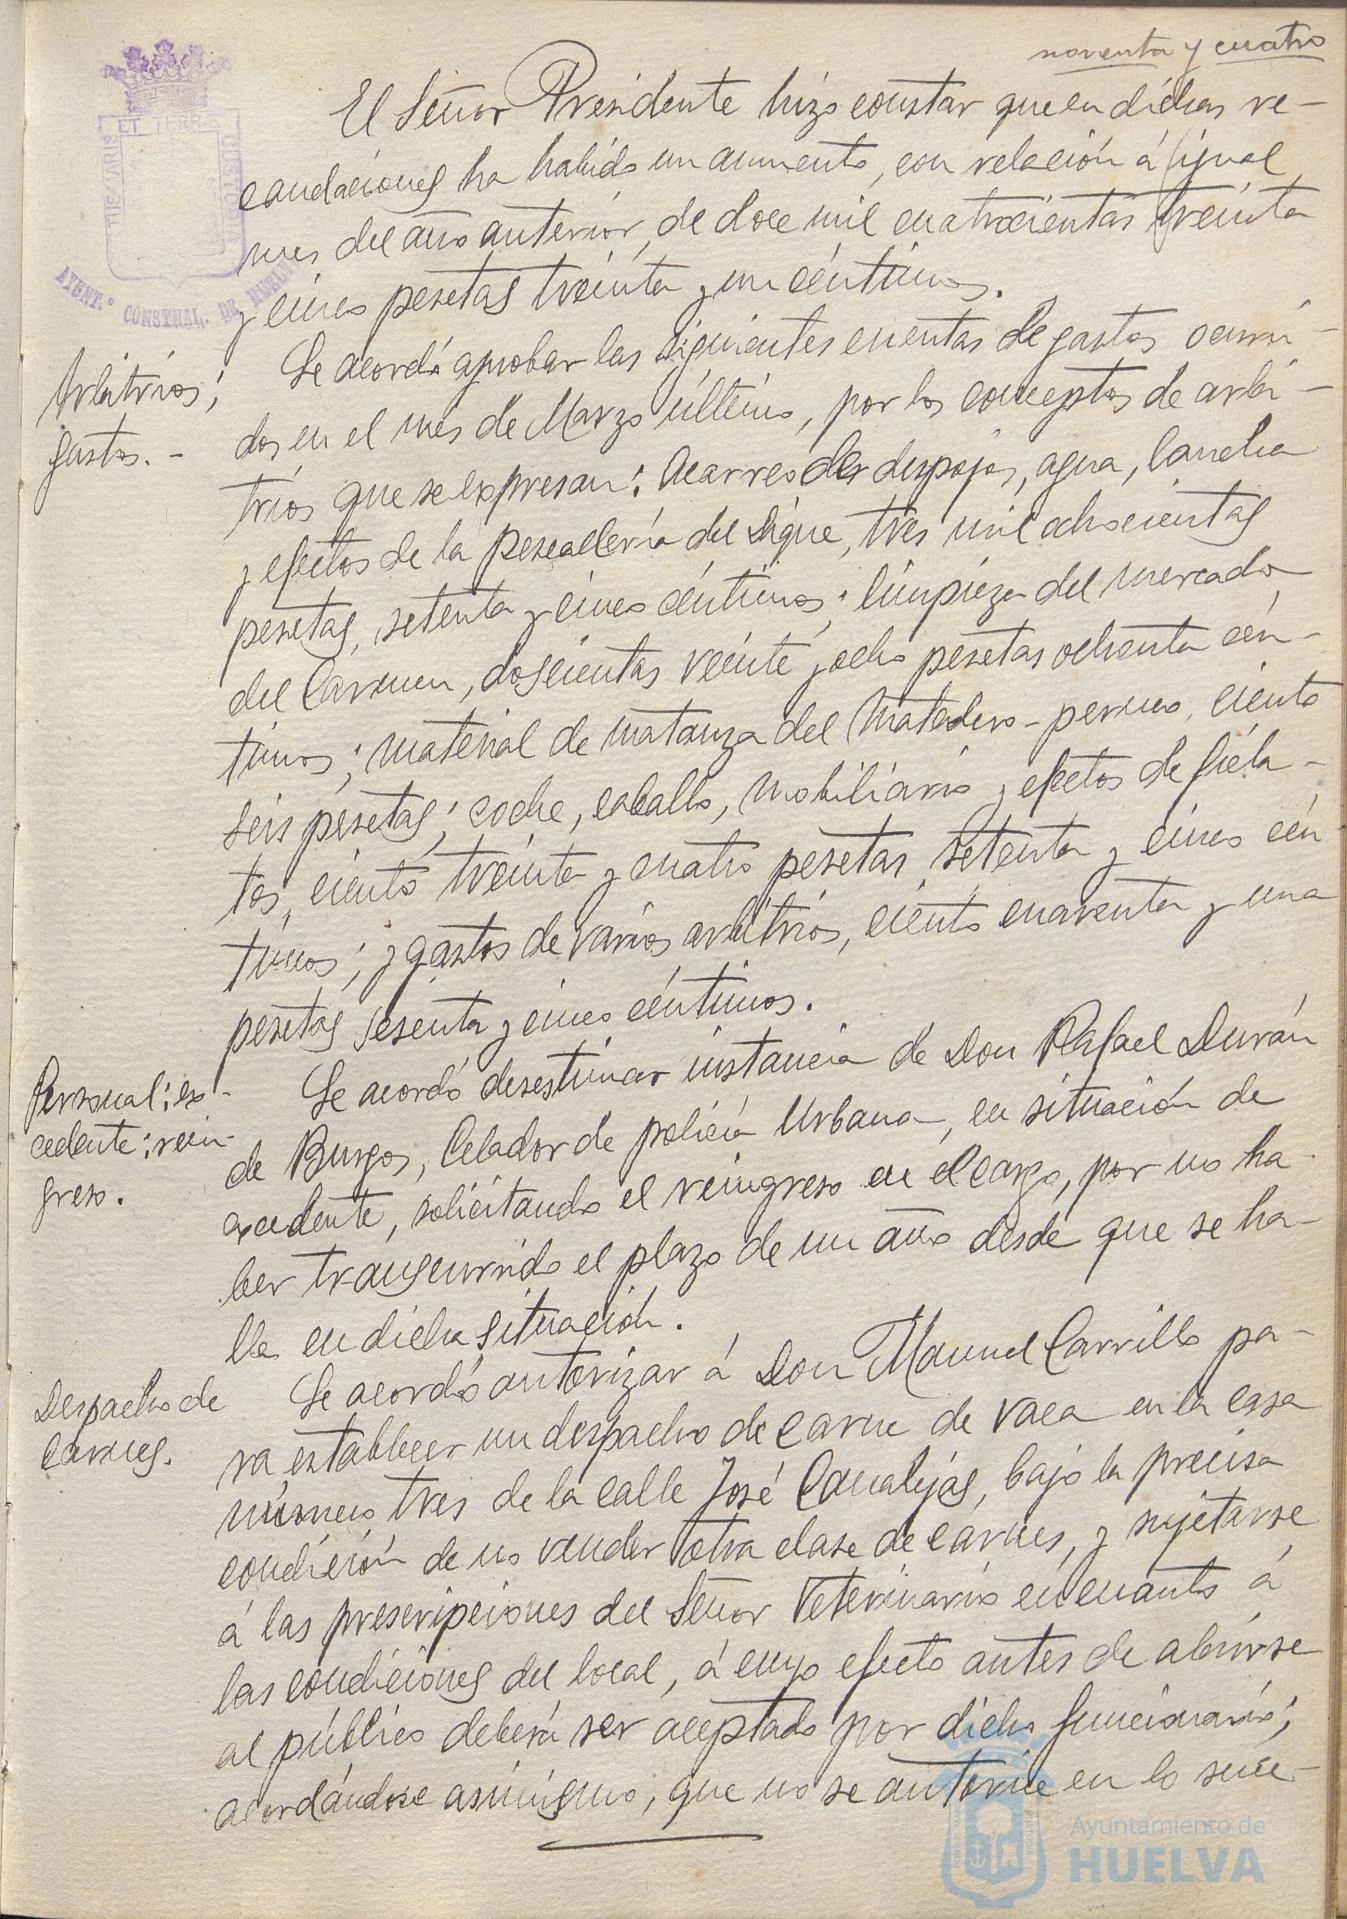 noventa y cuatro
PORTUS MARIS
ET TERRÆ
CUSTODIA
AYUNT.º CONSTNAL. DE HUELVA
El Señor Presidente hizo constar que en dichas re-
caudaciones ha habido un aumento, con relación á igual
mes del año anterior, de doce mil cuatrocientas treinta
y cinco pesetas treinta y un céntimos.
Arbitrios;
gastos. -
Se acordó aprobar las siguientes cuentas de gastos ocurri-
dos en el mes de Marzo último, por los conceptos de arbi-
trios que se expresan: Acarreo de despojos, agua, lancha
y efectos de la pescadería del Dique, tres mil ochocientas
pesetas, setenta y cinco céntimos; limpieza del mercado
del Carmen, doscientas veinte y ocho pesetas ochenta cén-
timos; material de matanza del Matadero-permeo, ciento
seis pesetas; coche, caballo, mobiliario y efectos de fiela-
tos, ciento treinta y cuatro pesetas setenta y cinco cén
timos; y gastos de varios arbitrios, ciento cuarenta y una
pesetas sesenta y cinco céntimos.
Personal: ex-
cedente: rein-
greso.
Se acordó desestimar instancia de Don Rafael Durán
de Burgos, Celador de policía Urbana, en situación de
excedente, solicitando el reingreso en el cargo, por no ha-
ber transcurrido el plazo de un año desde que se ha-
lla en dicha situación.
Despacho de
carnes.
Se acordó autorizar á Don Manuel Carrillo pa-
ra establecer un despacho de carne de vaca en la casa
número tres de la calle José Canalejas, bajo la precisa
condición de no vender otra clase de carnes, y sujetarse
á las prescripciones del Señor Veterinario en cuanto á
las condiciones del local, á cuyo efecto antes de abrirse
al público deberá ser aceptado por dicho funcionario;
acordándose asimismo, que no se autorice en lo suce-
Ayuntamiento de
HUELVA